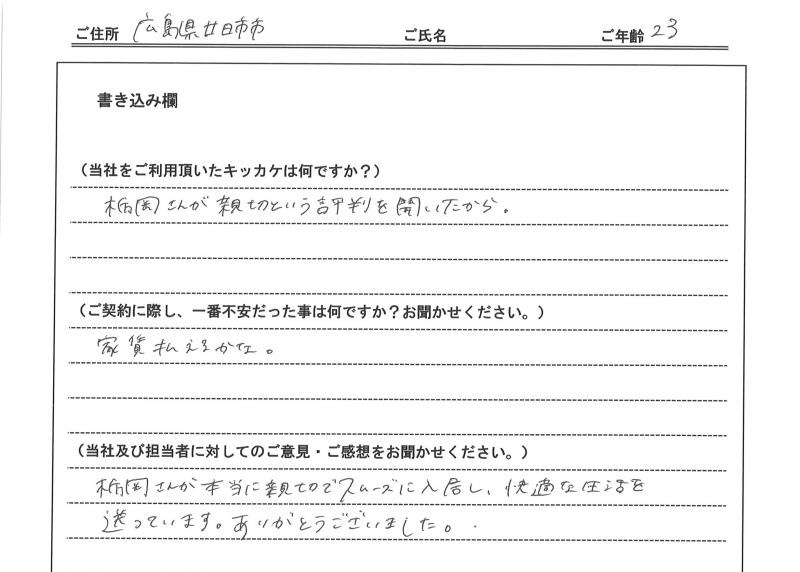 ご住所 広島県廿日市市 ご氏名 ご年齢 23
書き込み欄
(当社をご利用頂いたキッカケは何ですか?)
栃岡さんが親切という評判を聞いたから。
(ご契約に際し、一番不安だった事は何ですか?お聞かせください。)
家賃払えるかな。
(当社及び担当者に対してのご意見・ご感想をお聞かせください。)
栃岡さんが本当に親切でスムーズに入居し、快適な生活を
送っています。ありがとうございました。